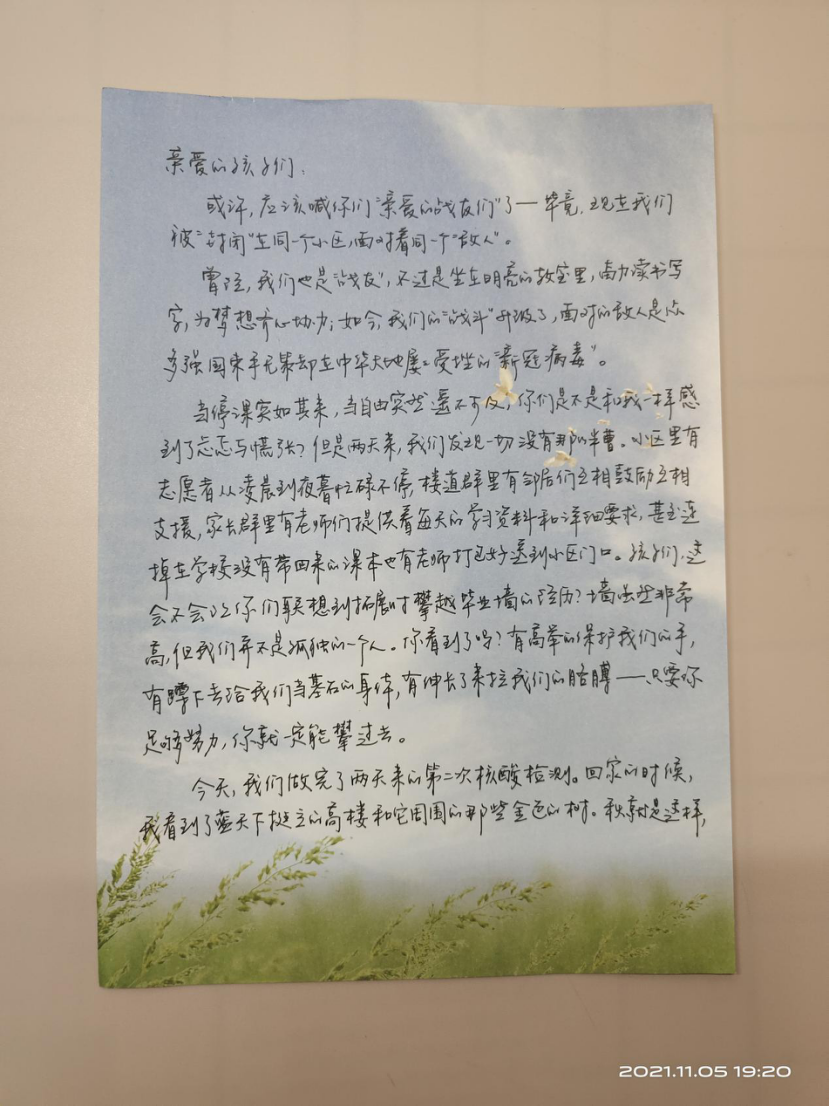 亲爱的孩子们，
或许，应该喊你们“亲爱的战友们”了——毕竟，现在我们
被“封闭”在同一个小区，面对着同一个“敌人”。
曾经，我们也是“战友”，不过是坐在明亮的教室里，奋力读书写
字，为梦想齐心协力；如今，我们的“战斗”升级了，面对的敌人是让
多强国束手无策却在中华大地屡屡受挫的“新冠病毒”。
当停课突如其来，当自由突然遥不可及，你们是不是和我一样感
到了忐忑与慌张？但是两天来，我们发现一切没有那么糟。小区里有
志愿者从凌晨到夜暮忙碌不停，楼道群里有邻居们互相鼓励互相
支援，家长群里有老师们提供着每天的学习资料和详细要求，甚至连
掉在学校没有带回来的课本也有老师打包好送到小区门口。孩子们，这
会不会让你们联想到拓展时攀越毕业墙的经历？墙虽然非常
高，但我们并不是孤独的一个人。你看到了吗？有高举的保护我们的手，
有蹲下去给我们当基石的身体，有伸长了来拉我们的胳膊——只要你
足够努力，你就一定能攀过去。
今天，我们做完了两天来的第二次核酸检测。回家的时候，
我看到了蓝天下挺立的高楼和它周围的那些金色的树。秋就是这样，
2021.11.05 19:20